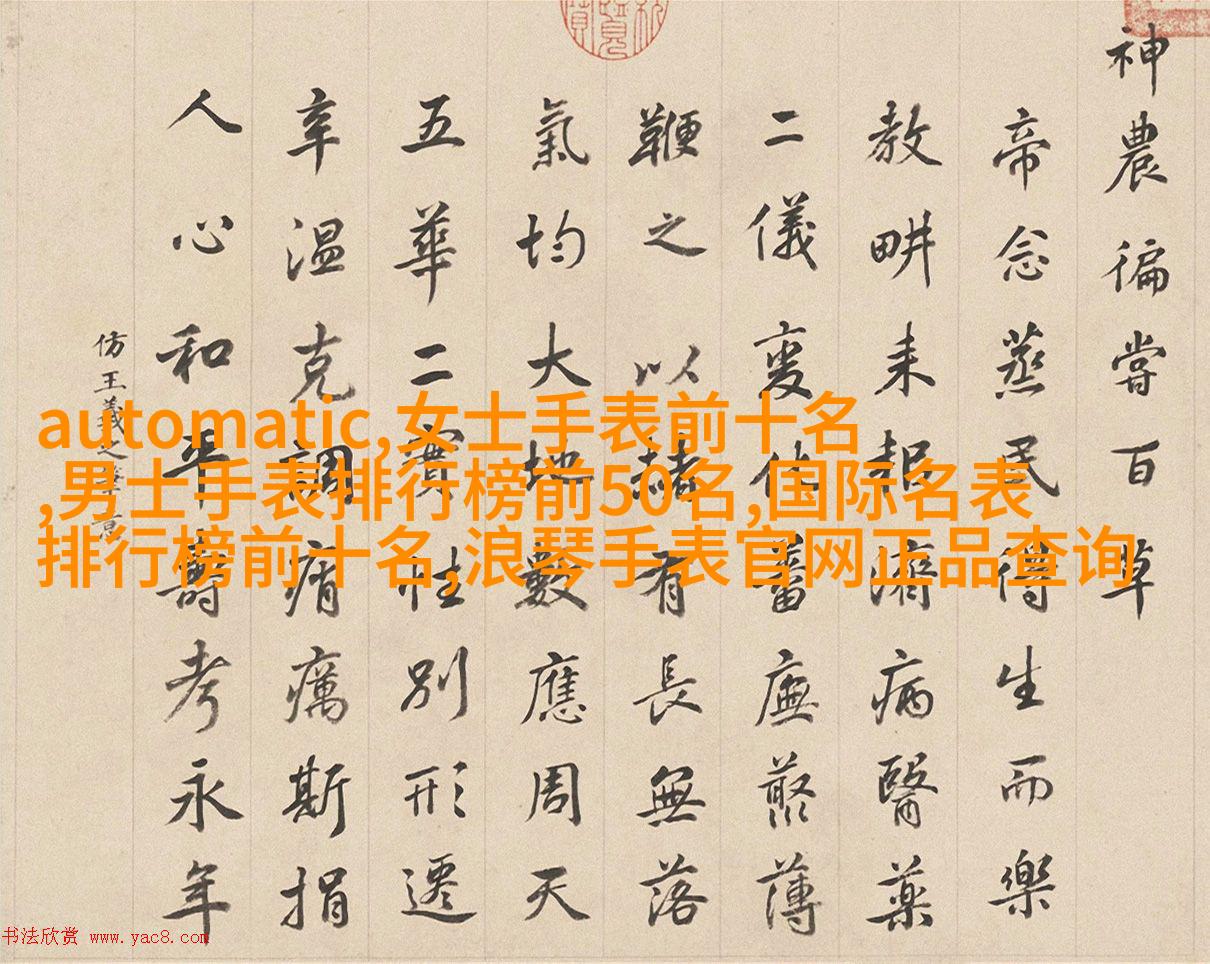 神農徧嘗百草
帝念蒸民得生而樂
教畊耒耜濟病醫藥
二儀變化蓄廡藂薄
鞭之以赭有長無落
氣均大地數應周天
五華二實性別形遷
辛温克調痟癘斯捐
人心和平壽考永年
仿王羲之筆意
automatic,女士手表前十名
,男士手表排行榜前50名,国际名表
排行榜前十名,浪琴手表官网正品查询
书法欣赏 www.yac8.com